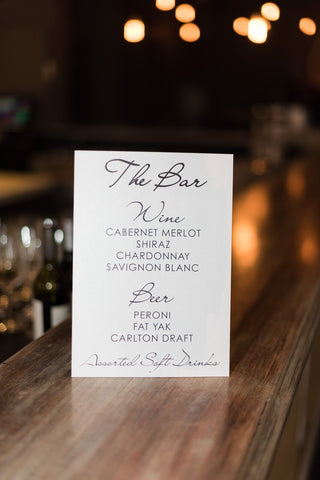 The Bar
Wine
CABERNET MERLOT
SHIRAZ
CHARDONNAY
SAVIGNON BLANC
Beer
PERONI
FAT YAK
CARLTON DRAFT
Assorted Soft Drinks